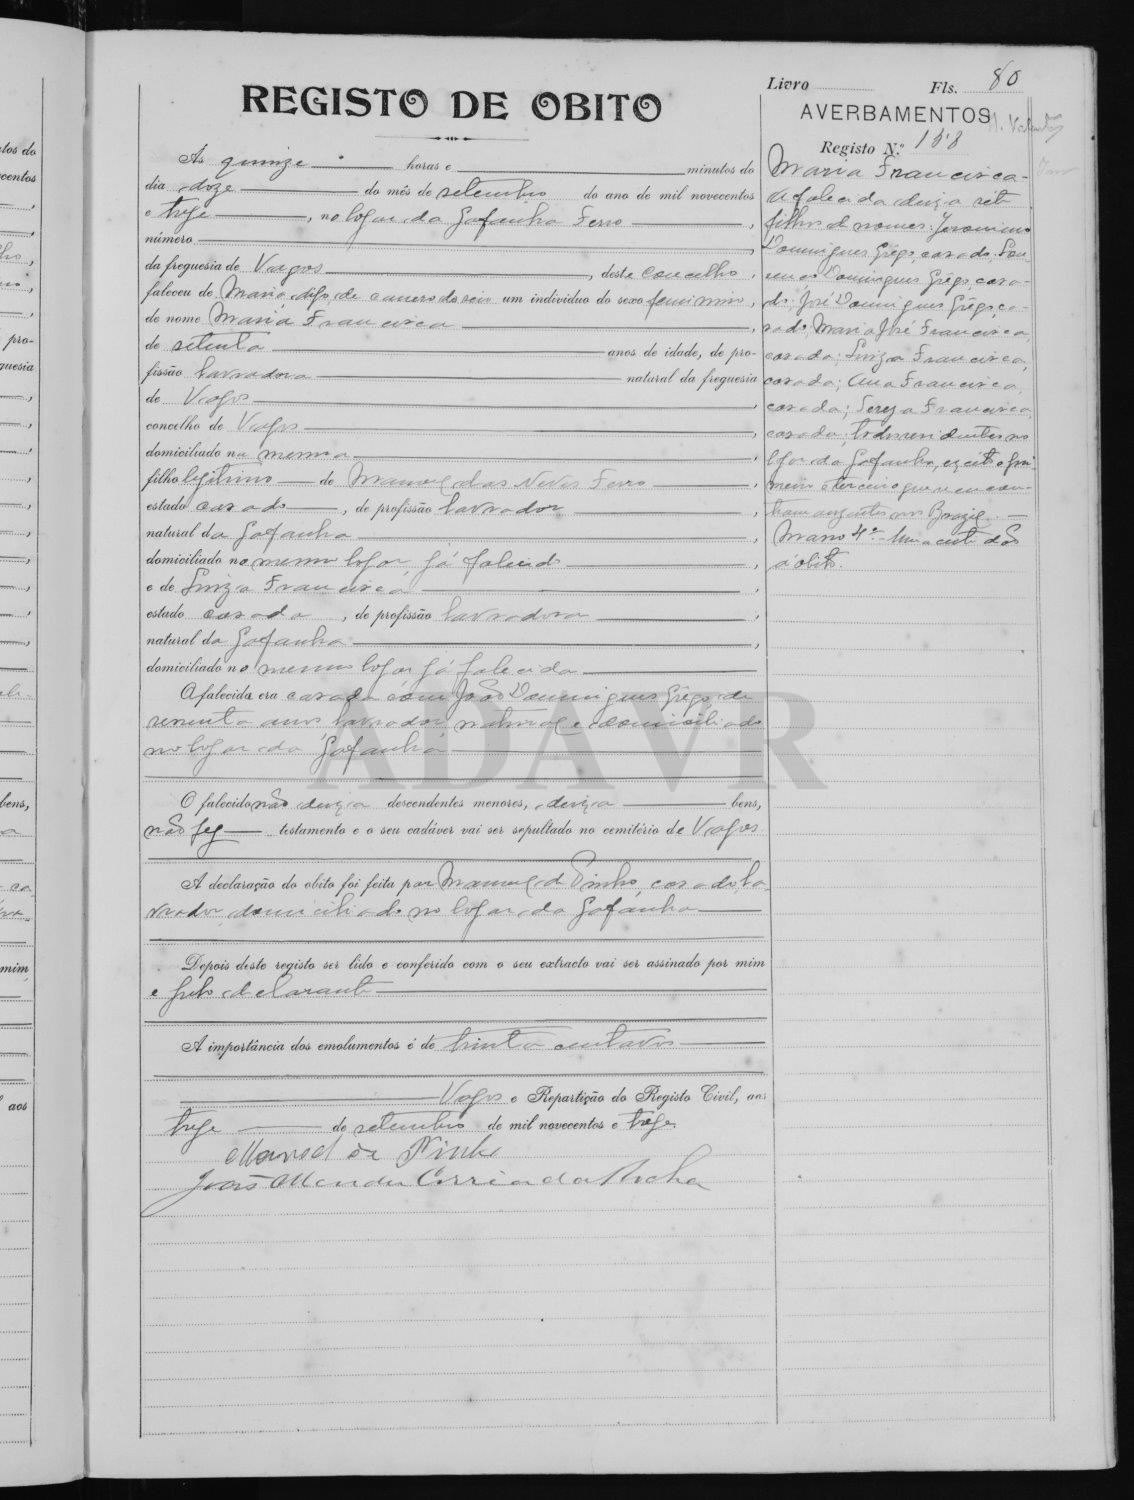 Livro Fls. 80
REGISTO DE OBITO
AVERBAMENTOS
Registo N.º 158
Ás quinze horas e minutos do
dia doze do mês de setembro do ano de mil novecentos
e treze, no logar da Gafanha Ferro,
número
da freguesia de Vagos, deste concelho,
faleceu de um individuo do sexo feminino,
de nome Maria Francisca,
de setenta anos de idade, de pro-
fissão lavradora natural da freguesia
de Vagos,
concelho de Vagos,
domiciliado na mesma,
filho legitimo de Manuel das Neves Ferro,
estado casado, de profissão lavrador,
natural da Gafanha,
domiciliado no mesmo logar, já falecido,
e de Luiza Francisca,
estado casada, de profissão lavradora,
natural da Gafanha,
domiciliado no mesmo logar já falecida
A falecida era casada com João Domingues Grêgo, de
sesenta anos lavrador, natural e domiciliado
no logar da Gafanha
O falecido não deixa descendentes menores, deixa bens,
não fez testamento e o seu cadáver vai ser sepultado no cemitério de Vagos
A declaração do obito foi feita por Manuel de Pinho, casado, la-
vrador, domiciliado no logar da Gafanha
Depois deste registo ser lido e conferido com o seu extracto vai ser assinado por mim
e pelo declarante
A importância dos emolumentos é de trinta centavos
Vagos e Repartição do Registo Civil, aos
treze de setembro de mil novecentos e treze.
Manuel de Pinho
João Mendes Correia da Rocha
Maria Francisca-
A falecida deixa sete
filhos de nomes: Jeronimo
Domingues Grêgo, casado, Lou-
renço Domingues Grêgo, casa-
do, José Domingues Grêgo, ca-
sado, Maria José Francisca,
casada; Luiza Francisca,
casada; Ana Francisca,
casada; Tereza Francisca,
casada; todos residentes no
logar da Gafanha, exceto o pri-
meiro e terceiro que se encon-
tram ausentes no Brazil.
á óbito.
ADAVR